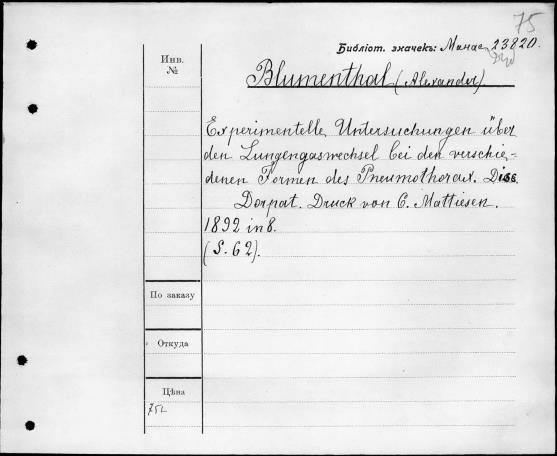 75
Библіот. значекъ: Манас. 23820.
Инв.
№
Blumenthal (Alexander)
Experimentelle Untersuchungen über
den Lungengaswechsel bei den verschie-
denen Formen des Pneumothorax. Diss.
Dorpat. Druck von C. Mattiesen.
1892 in 8.
(S. 62).
По заказу
Откуда
Цѣна